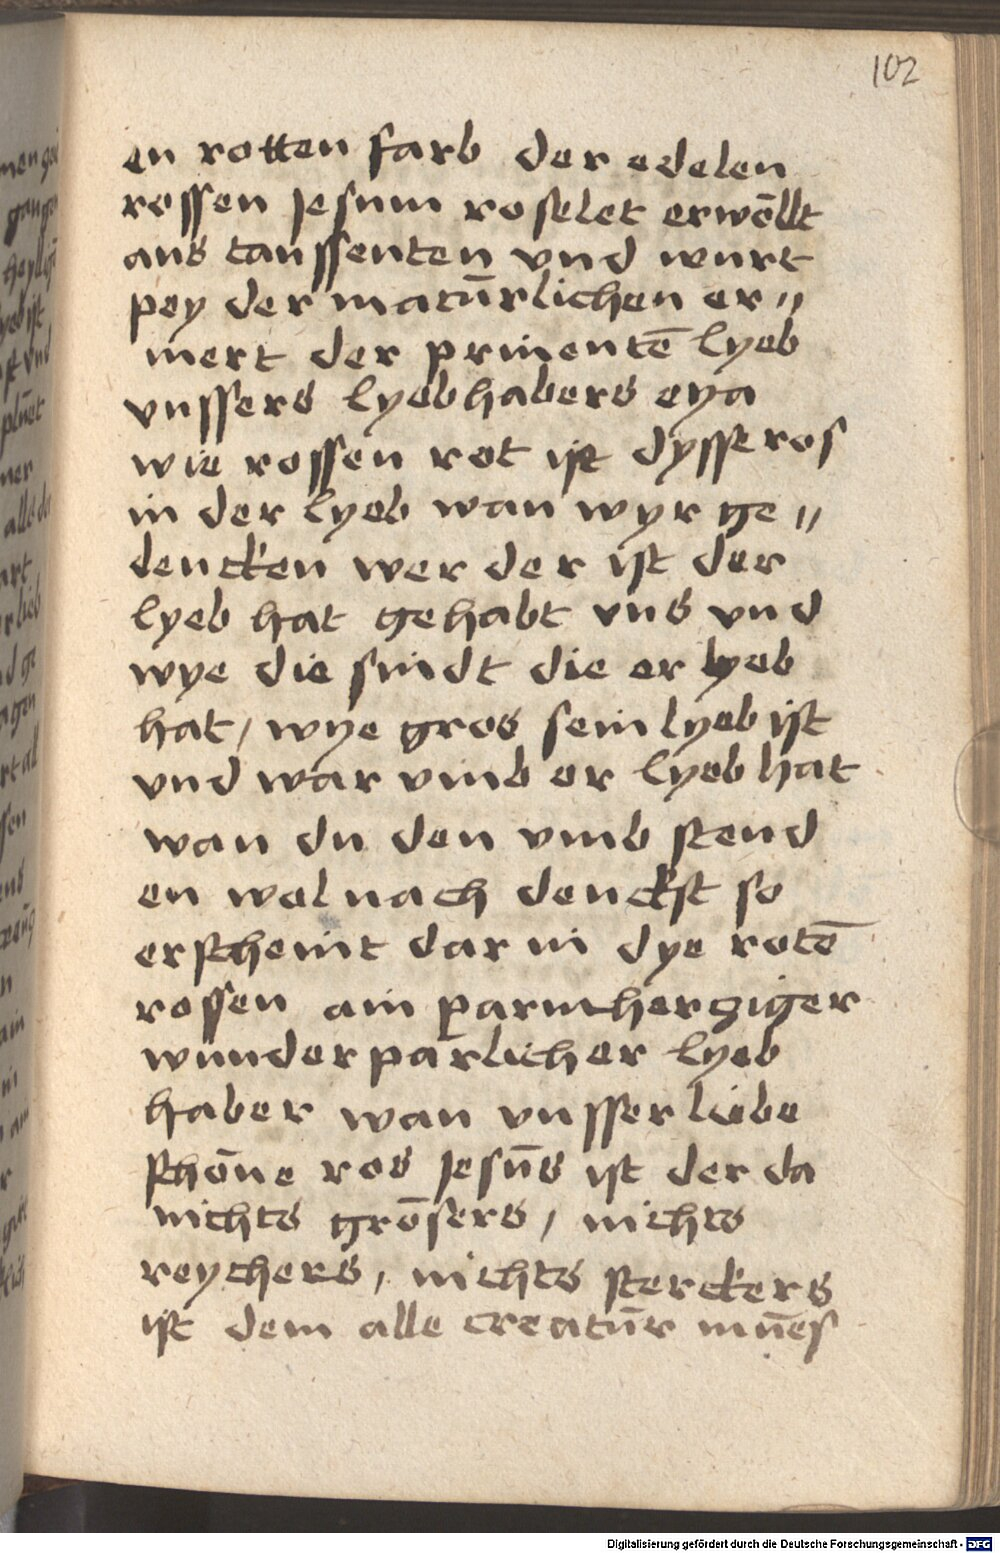 102
en rotten farb der edelen
rossen Jesum roselet erwo̅llt
aus taussenten vnd wurt
pey der natu̅rlichen er〃
mert der prinente̅ lyeb
vnssers lyebhabers eya
wie rossen rot ist dysse ros
in der lyeb wan wyr ge〃
dencken wer der ist der
lyeb hat gehabt vns vnd
wye die sindt die er lyeb
hat / wye gros sein lyeb ist
vnd war vmb er lyeb hat
wan du den vmb stend
en wol nach denckst so
erscheint dar in dye rote̅
rossen ain parmherziger
wunderparlicher lyeb
haber wan vnsser liebe
scho̅ne ros Jesu̅s ist der da
nichts gro̅sers / nichts
reychers, nichts sterckers
ist dem alle creatu̅r mu̅es
Digitalisierung gefördert durch die Deutsche Forschungsgemeinschaft - DFG